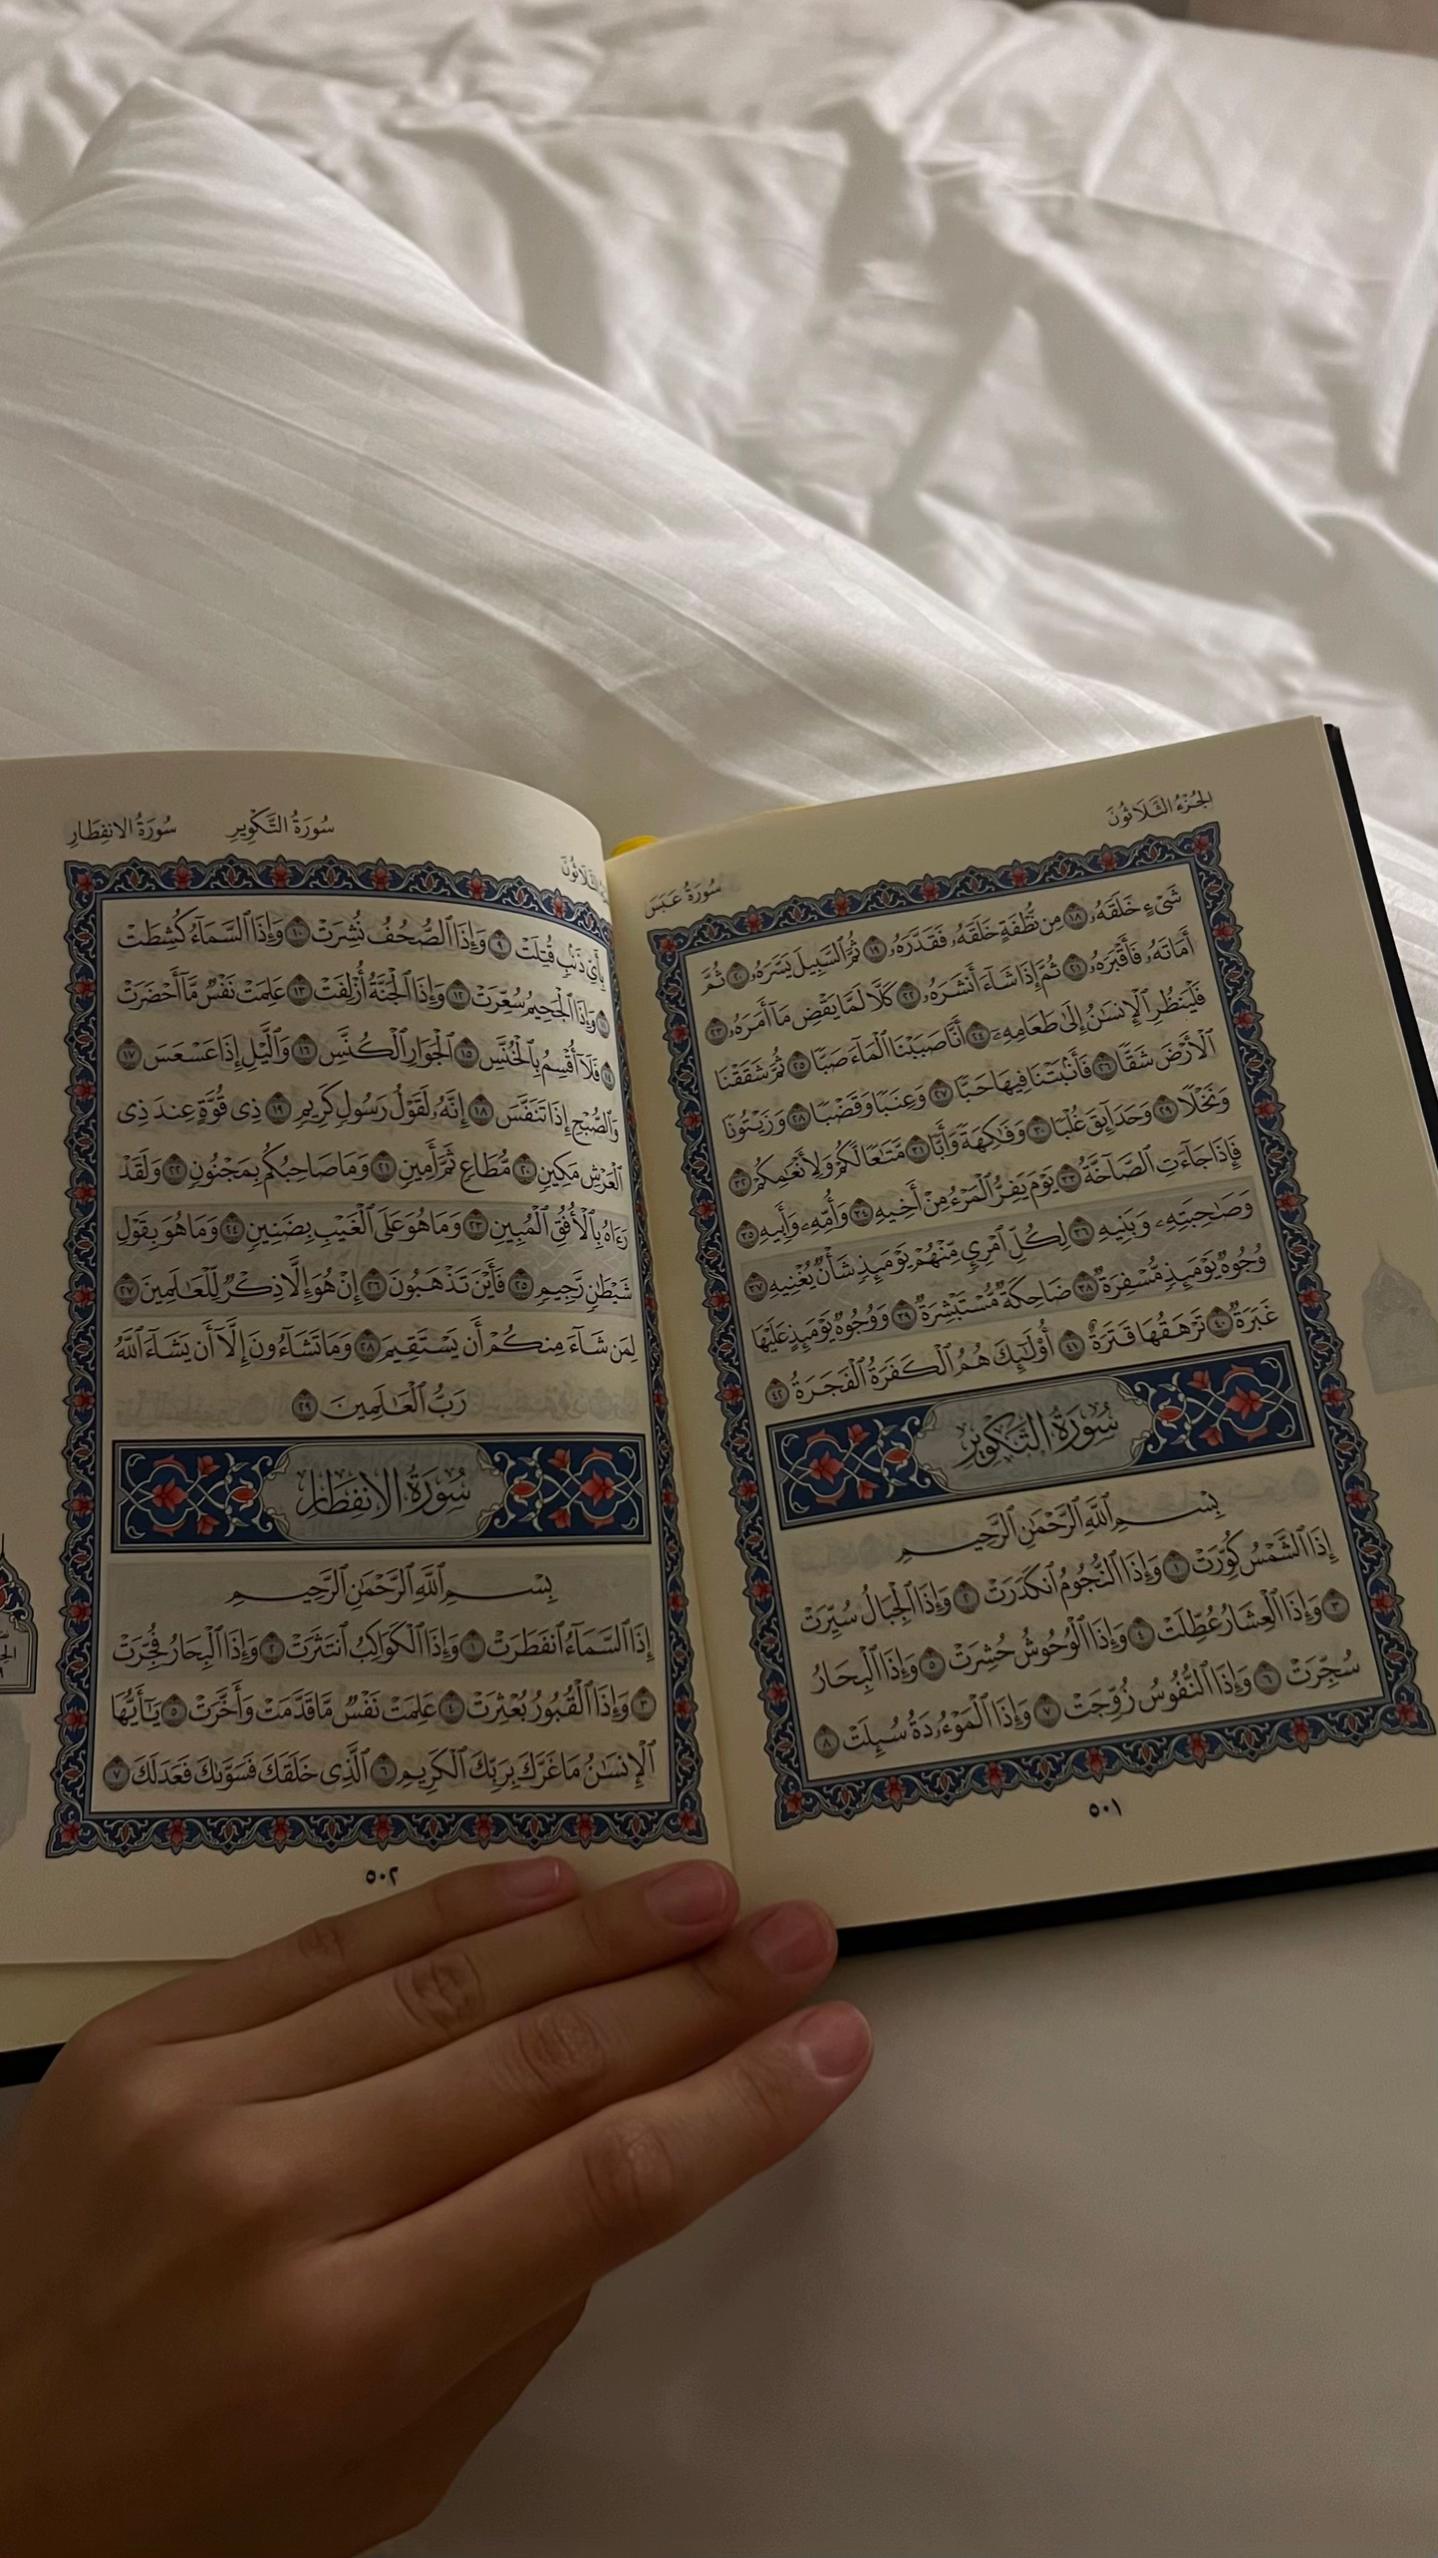 الجُزْءُ الثَّلَاثُونَ
سُورَةُ عَبَسَ
شَىْءٍ خَلَقَهُۥ ١٨ مِن نُّطْفَةٍ خَلَقَهُۥ فَقَدَّرَهُۥ ١٩ ثُمَّ ٱلسَّبِيلَ يَسَّرَهُۥ ٢٠ ثُمَّ
أَمَاتَهُۥ فَأَقْبَرَهُۥ ٢١ ثُمَّ إِذَا شَآءَ أَنشَرَهُۥ ٢٢ كَلَّا لَمَّا يَقْضِ مَآ أَمَرَهُۥ ٢٣
فَلْيَنظُرِ ٱلْإِنسَٰنُ إِلَىٰ طَعَامِهِۦٓ ٢٤ أَنَّا صَبَبْنَا ٱلْمَآءَ صَبًّا ٢٥ ثُمَّ شَقَقْنَا
ٱلْأَرْضَ شَقًّا ٢٦ فَأَنۢبَتْنَا فِيهَا حَبًّا ٢٧ وَعِنَبًا وَقَضْبًا ٢٨ وَزَيْتُونًا
وَنَخْلًا ٢٩ وَحَدَآئِقَ غُلْبًا ٣٠ وَفَٰكِهَةً وَأَبًّا ٣١ مَّتَٰعًا لَّكُمْ وَلِأَنْعَٰمِكُمْ ٣٢
فَإِذَا جَآءَتِ ٱلصَّآخَّةُ ٣٣ يَوْمَ يَفِرُّ ٱلْمَرْءُ مِنْ أَخِيهِ ٣٤ وَأُمِّهِۦ وَأَبِيهِ ٣٥
وَصَٰحِبَتِهِۦ وَبَنِيهِ ٣٦ لِكُلِّ ٱمْرِئٍ مِّنْهُمْ يَوْمَئِذٍ شَأْنٌ يُغْنِيهِ ٣٧
وُجُوهٌ يَوْمَئِذٍ مُّسْفِرَةٌ ٣٨ ضَاحِكَةٌ مُّسْتَبْشِرَةٌ ٣٩ وَوُجُوهٌ يَوْمَئِذٍ عَلَيْهَا
غَبَرَةٌ ٤٠ تَرْهَقُهَا قَتَرَةٌ ٤١ أُو۟لَٰٓئِكَ هُمُ ٱلْكَفَرَةُ ٱلْفَجَرَةُ ٤٢
سُورَةُ التَّكْوِيرِ
بِسْمِ ٱللَّهِ ٱلرَّحْمَٰنِ ٱلرَّحِيمِ
إِذَا ٱلشَّمْسُ كُوِّرَتْ ١ وَإِذَا ٱلنُّجُومُ ٱنكَدَرَتْ ٢ وَإِذَا ٱلْجِبَالُ سُيِّرَتْ
٣ وَإِذَا ٱلْعِشَارُ عُطِّلَتْ ٤ وَإِذَا ٱلْوُحُوشُ حُشِرَتْ ٥ وَإِذَا ٱلْبِحَارُ
سُجِّرَتْ ٦ وَإِذَا ٱلنُّفُوسُ زُوِّجَتْ ٧ وَإِذَا ٱلْمَوْءُۥدَةُ سُئِلَتْ ٨
٥٠١
سُورَةُ التَّكْوِيرِ
سُورَةُ الانفِطَارِ
بِأَىِّ ذَنۢبٍ قُتِلَتْ ٩ وَإِذَا ٱلصُّحُفُ نُشِرَتْ ١٠ وَإِذَا ٱلسَّمَآءُ كُشِطَتْ
١١ وَإِذَا ٱلْجَحِيمُ سُعِّرَتْ ١٢ وَإِذَا ٱلْجَنَّةُ أُزْلِفَتْ ١٣ عَلِمَتْ نَفْسٌ مَّآ أَحْضَرَتْ
١٤ فَلَآ أُقْسِمُ بِٱلْخُنَّسِ ١٥ ٱلْجَوَارِ ٱلْكُنَّسِ ١٦ وَٱلَّيْلِ إِذَا عَسْعَسَ ١٧
وَٱلصُّبْحِ إِذَا تَنَفَّسَ ١٨ إِنَّهُۥ لَقَوْلُ رَسُولٍ كَرِيمٍ ١٩ ذِى قُوَّةٍ عِندَ ذِى
ٱلْعَرْشِ مَكِينٍ ٢٠ مُّطَاعٍ ثَمَّ أَمِينٍ ٢١ وَمَا صَاحِبُكُم بِمَجْنُونٍ ٢٢ وَلَقَدْ
رَءَاهُ بِٱلْأُفُقِ ٱلْمُبِينِ ٢٣ وَمَا هُوَ عَلَى ٱلْغَيْبِ بِضَنِينٍ ٢٤ وَمَا هُوَ بِقَوْلِ
شَيْطَٰنٍ رَّجِيمٍ ٢٥ فَأَيْنَ تَذْهَبُونَ ٢٦ إِنْ هُوَ إِلَّا ذِكْرٌ لِّلْعَٰلَمِينَ ٢٧
لِمَن شَآءَ مِنكُمْ أَن يَسْتَقِيمَ ٢٨ وَمَا تَشَآءُونَ إِلَّآ أَن يَشَآءَ ٱللَّهُ
رَبُّ ٱلْعَٰلَمِينَ ٢٩
سُورَةُ الانفِطَارِ
بِسْمِ ٱللَّهِ ٱلرَّحْمَٰنِ ٱلرَّحِيمِ
إِذَا ٱلسَّمَآءُ ٱنفَطَرَتْ ١ وَإِذَا ٱلْكَوَاكِبُ ٱنتَثَرَتْ ٢ وَإِذَا ٱلْبِحَارُ فُجِّرَتْ
٣ وَإِذَا ٱلْقُبُورُ بُعْثِرَتْ ٤ عَلِمَتْ نَفْسٌ مَّا قَدَّمَتْ وَأَخَّرَتْ ٥ يَٰٓأَيُّهَا
ٱلْإِنسَٰنُ مَا غَرَّكَ بِرَبِّكَ ٱلْكَرِيمِ ٦ ٱلَّذِى خَلَقَكَ فَسَوَّىٰكَ فَعَدَلَكَ ٧
٥٠٢